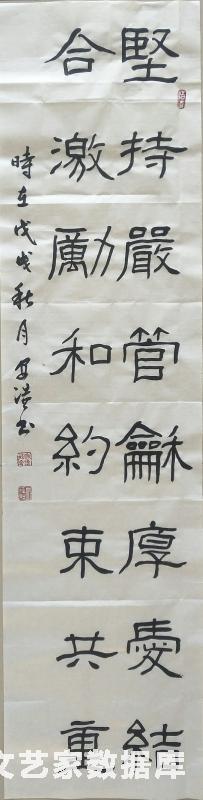 堅持嚴管龢厚愛結
合激勵和約束共重
時在戊戌秋月 浩书
文艺家数据库